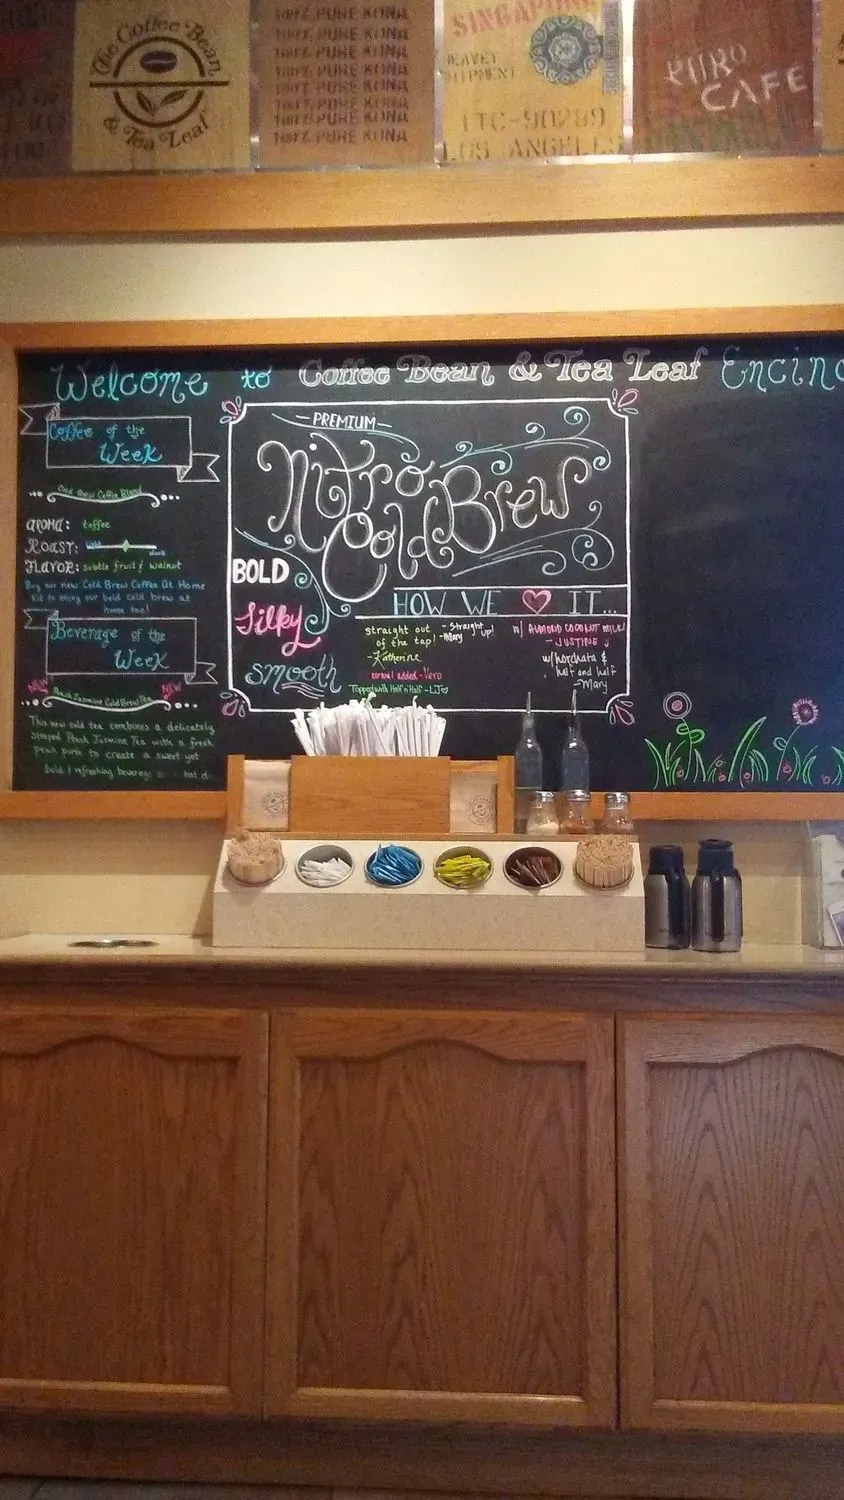 The Coffee Bean
& Tea Leaf
100% PURE KONA
100% PURE KONA
100% PURE KONA
100% PURE KONA
100% PURE KONA
100% PURE KONA
100% PURE KONA
100% PURE KONA
SINGAPORE
HEAVY
SHIPMENT
ITC-90289
LOS ANGELES
CAFE
Welcome to Coffee Bean & Tea Leaf Encino
Coffee of the
Week
Cold Brew Coffee Blend
AROMA: toffee
ROAST:
FLAVOR: subtle fruit & walnut
Buy our new Cold Brew Coffee At Home
Kit to enjoy our bold cold brew at
home too!
Beverage of the
Week
NEW Peach Jasmine Cold Brew Tea NEW
This new cold tea combines a delicately
steeped Peach Jasmine Tea with a fresh
peach purée to create a sweet yet
bold & refreshing beverage
PREMIUM
Nitro
Cold Brew
BOLD
Silky
smooth
HOW WE IT...
straight out
of the tap!
-Katherine
-Straight up!
-Hilary
caramel added - Vero
Topped with Half n Half - LJ
w/ ALMOND COCONUT MILK!
- JUSTINE ;
w/ horchata &
half and half
-Mary